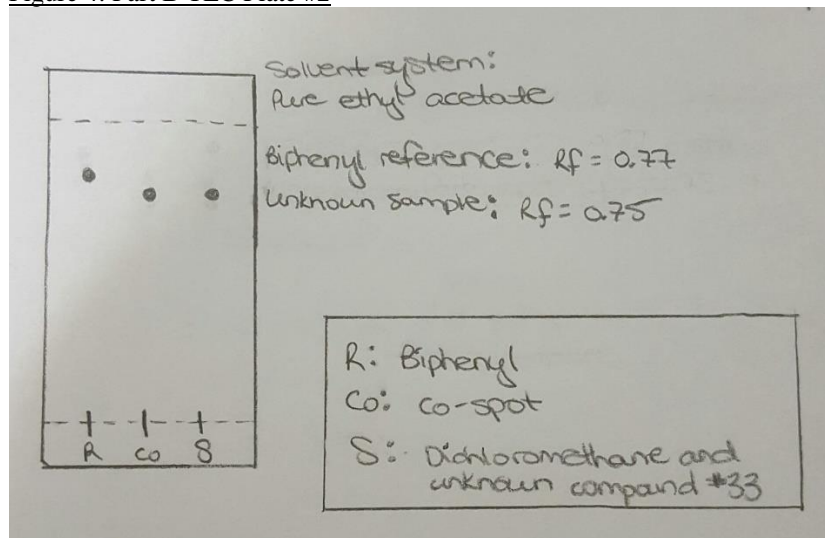 Solvent system:
Pure ethyl acetate
Biphenyl reference: Rf = 0.77
Unknown Sample: Rf = 0.75
R Co S
R: Biphenyl
Co: co-spot
S: Dichloromethane and
unknown compound #33